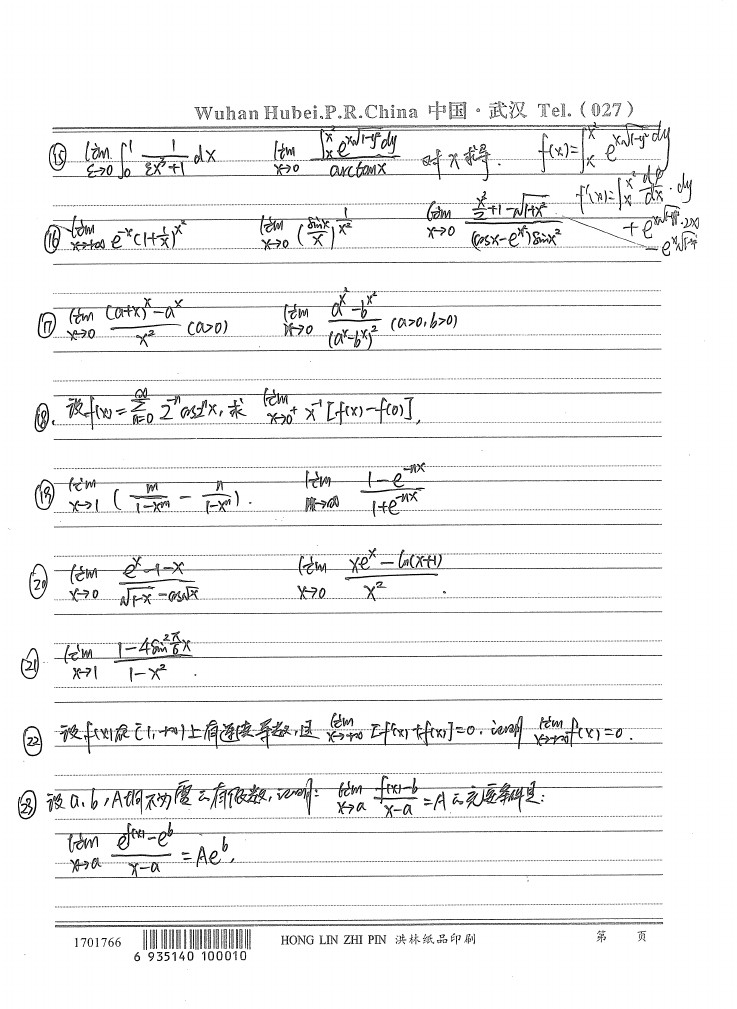 Wuhan Hubei.P.R.China 中国·武汉 Tel.(027)
⑮ lim_{ε→0} ∫_0^1 1/(εx²+1) dx  lim_{x→0} ∫_x^{x²} e^{x√(1-y²)} dy / arctanx  对x求导.  f(x)=∫_x^{x²} e^{x√(1-y²)} dy
f'(x)=∫_x^{x²} de/dx · dy
⑯ lim_{x→+∞} e^{-x}(1+1/x)^{x²}  lim_{x→0} (sinx/x)^{1/x²}  lim_{x→0} (x²/2+1-√(1+x²))/((cosx-e^{x²})sinx²)  + e^{x√(1-y²)}·2x
- e^{x√(1-y²)}
⑰ lim_{x→0} ((a+x)^x-a^x)/x² (a>0)  lim_{x→0} (a^{x²}-b^{x²})/(a^x-b^x)² (a>0,b>0)
⑱. 设f(x)=∑_{n=0}^∞ 2^{-n}cos2^n x, 求 lim_{x→0⁺} x^{-1}[f(x)-f(0)],
⑲ lim_{x→1} (m/(1-x^m) - n/(1-x^n)).  lim_{n→∞} (1-e^{-nx})/(1+e^{-nx})
⑳ lim_{x→0} (e^x-1-x)/(√(1-x)-cos√x)  lim_{x→0} (xe^x-ln(x+1))/x² .
㉑ lim_{x→1} (1-4sin²(π/6)x)/(1-x²) .
㉒ 设f(x)在[1,+∞)上有连续导数,且 lim_{x→+∞} [f'(x)+f(x)]=0. 证明 lim_{x→+∞} f(x)=0.
㉓ 设a.b,A均不为零的有限数,证明: lim_{x→a} (f(x)-b)/(x-a) =A的充要条件是:
lim_{x→a} (e^{f(x)}-e^b)/(x-a) = Ae^b.
1701766
6 935140 100010
HONG LIN ZHI PIN 洪林纸品印刷
第 页